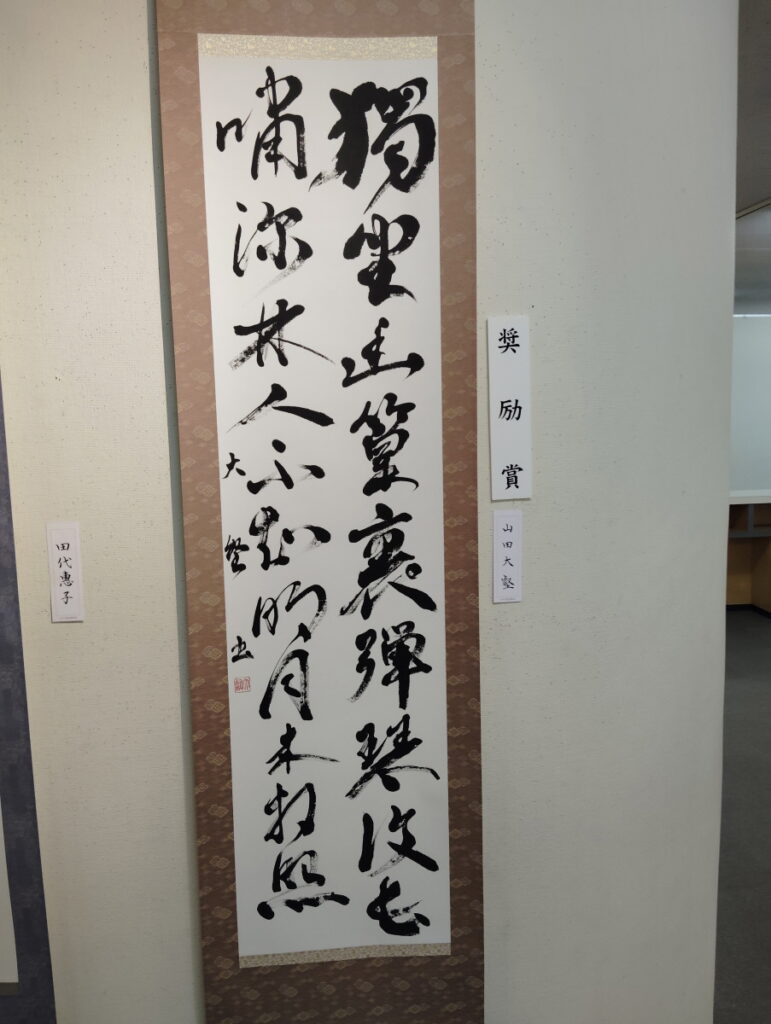 獨坐幽篁裏弾琴復長
嘯深林人不知明月来相照
大壑書
奨励賞
山田大壑
田代惠子